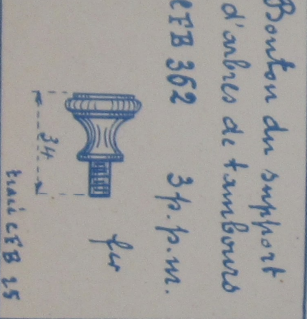 Bouton du support
d'arbres de tambours
CFB 362 3 p.p.m.
34
fer
CFB 25